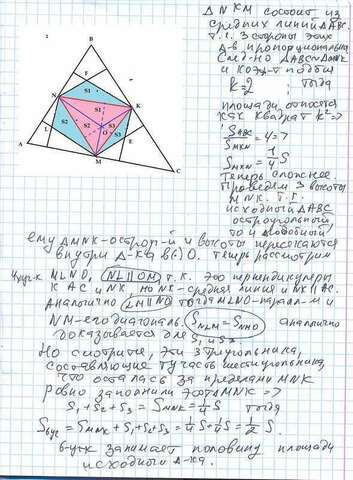 Δ NKM состоит из
средних линий ΔABC.
Т.к. 3 стороны этих
Δ-в пропорциональны
След-но ΔABC~ΔMNK
и коэф-т подобия
k=2 ; тогда
площади относятся
как квадрат k²=>
S ABC / S MKN = 4 =>
S MKN = 1/4 S
Теперь сложнее
проведем 3 высоты
MNK. Т.к.
исходный ΔABC
остроугольный
то и подобный
ему ΔMNK-остроуг-й и высоты пересекаются
внутри Δ-ка в(·)O. Теперь рассмотрим
MLNO, NL || OM т.к. это перпендикуляры
к AC и NK но NK-средняя линия и NK || AC.
Аналогично LM || NO тогда MLNO-паралл-м и
NM-его диагональ. S NLM = S MNO аналогично
доказывается для S₁ и S₃
Но смотрите, эти 3 треугольника,
составляющие ту часть шестиугольника,
что осталась за пределами MNK
ровно заполнили этот ΔMNK =>
S₁+S₂+S₃ = S MNK = 1/4 S тогда
S = S MNK + S₁+S₂+S₃ = 1/4 S + 1/4 S = 1/2 S.
6-уг-к занимает половину площади
исходного Δ-ка.
B
F
S1
N
K
S1
S2
S3
O
L
S2
S3
E
A
M
C